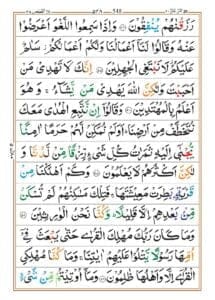 رَزَقْنٰهُمْ يُنْفِقُوْنَ ۝ وَاِذَا سَمِعُوا اللَّغْوَ اَعْرَضُوْا
عَنْهُ وَقَالُوْا لَنَاۤ اَعْمَالُنَا وَلَكُمْ اَعْمَالُكُمْ ؗ سَلٰمٌ
عَلَيْكُمْ ؗ لَا نَبْتَغِى الْجٰهِلِيْنَ ۝ اِنَّكَ لَا تَهْدِىْ مَنْ
اَحْبَبْتَ وَلٰكِنَّ اللّٰهَ يَهْدِىْ مَنْ يَّشَآءُ ۚ وَهُوَ
اَعْلَمُ بِالْمُهْتَدِيْنَ ۝ وَقَالُوْۤا اِنْ نَّتَّبِعِ الْهُدٰى مَعَكَ
نُتَخَطَّفْ مِنْ اَرْضِنَا ؕ اَوَلَمْ نُمَكِّنْ لَّهُمْ حَرَمًا اٰمِنًا
يُّجْبٰۤى اِلَيْهِ ثَمَرٰتُ كُلِّ شَىْءٍ رِّزْقًا مِّنْ لَّدُنَّا وَ
لٰكِنَّ اَكْثَرَهُمْ لَا يَعْلَمُوْنَ ۝ وَكَمْ اَهْلَكْنَا مِنْ
قَرْيَةٍۭ بَطِرَتْ مَعِيْشَتَهَا ۚ فَتِلْكَ مَسٰكِنُهُمْ لَمْ تُسْكَنْ
مِّنْۢ بَعْدِهِمْ اِلَّا قَلِيْلًا ؕ وَكُنَّا نَحْنُ الْوٰرِثِيْنَ ۝
وَمَا كَانَ رَبُّكَ مُهْلِكَ الْقُرٰى حَتّٰى يَبْعَثَ فِىْۤ
اُمِّهَا رَسُوْلًا يَّتْلُوْا عَلَيْهِمْ اٰيٰتِنَا ۚ وَمَا كُنَّا مُهْلِكِى
الْقُرٰۤى اِلَّا وَاَهْلُهَا ظٰلِمُوْنَ ۝ وَمَاۤ اُوْتِيْتُمْ مِّنْ شَىْءٍ